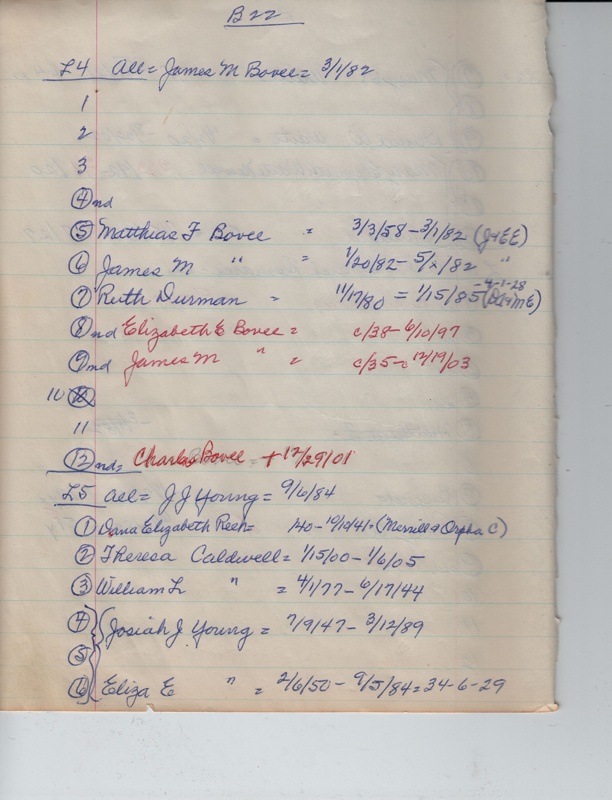 B22
L4 All = James M Bovee = 3/1/82
1
2
3
4 nd
5 Matthias F Bovee = 3/3/58 - 3/1/82 (J&EE)
6 James M " = 1/20/82 - 5/ /82 "
7 Ruth Durman = 11/17/80 = 1/15/85 - 4-1-28
8 nd Elizabeth E Bovee = c/38 - 6/10/97
9 nd James M " = c/35 - c 12/19/03
10
11
12 nd = Charles Bovee + 12/29/01
L5 All = J J Young = 9/6/84
1 Dana Elizabeth = 140 - 10/12/41 = (Merrill & Orpha C)
2 Theresa Caldwell = 1/15/00 - 1/6/05
3 William L " = 4/1/77 - 6/17/44
4 Josiah J Young = 7/9/47 - 3/12/89
5
6 Eliza E " = 2/6/50 - 9/5/84 = 34-6-29